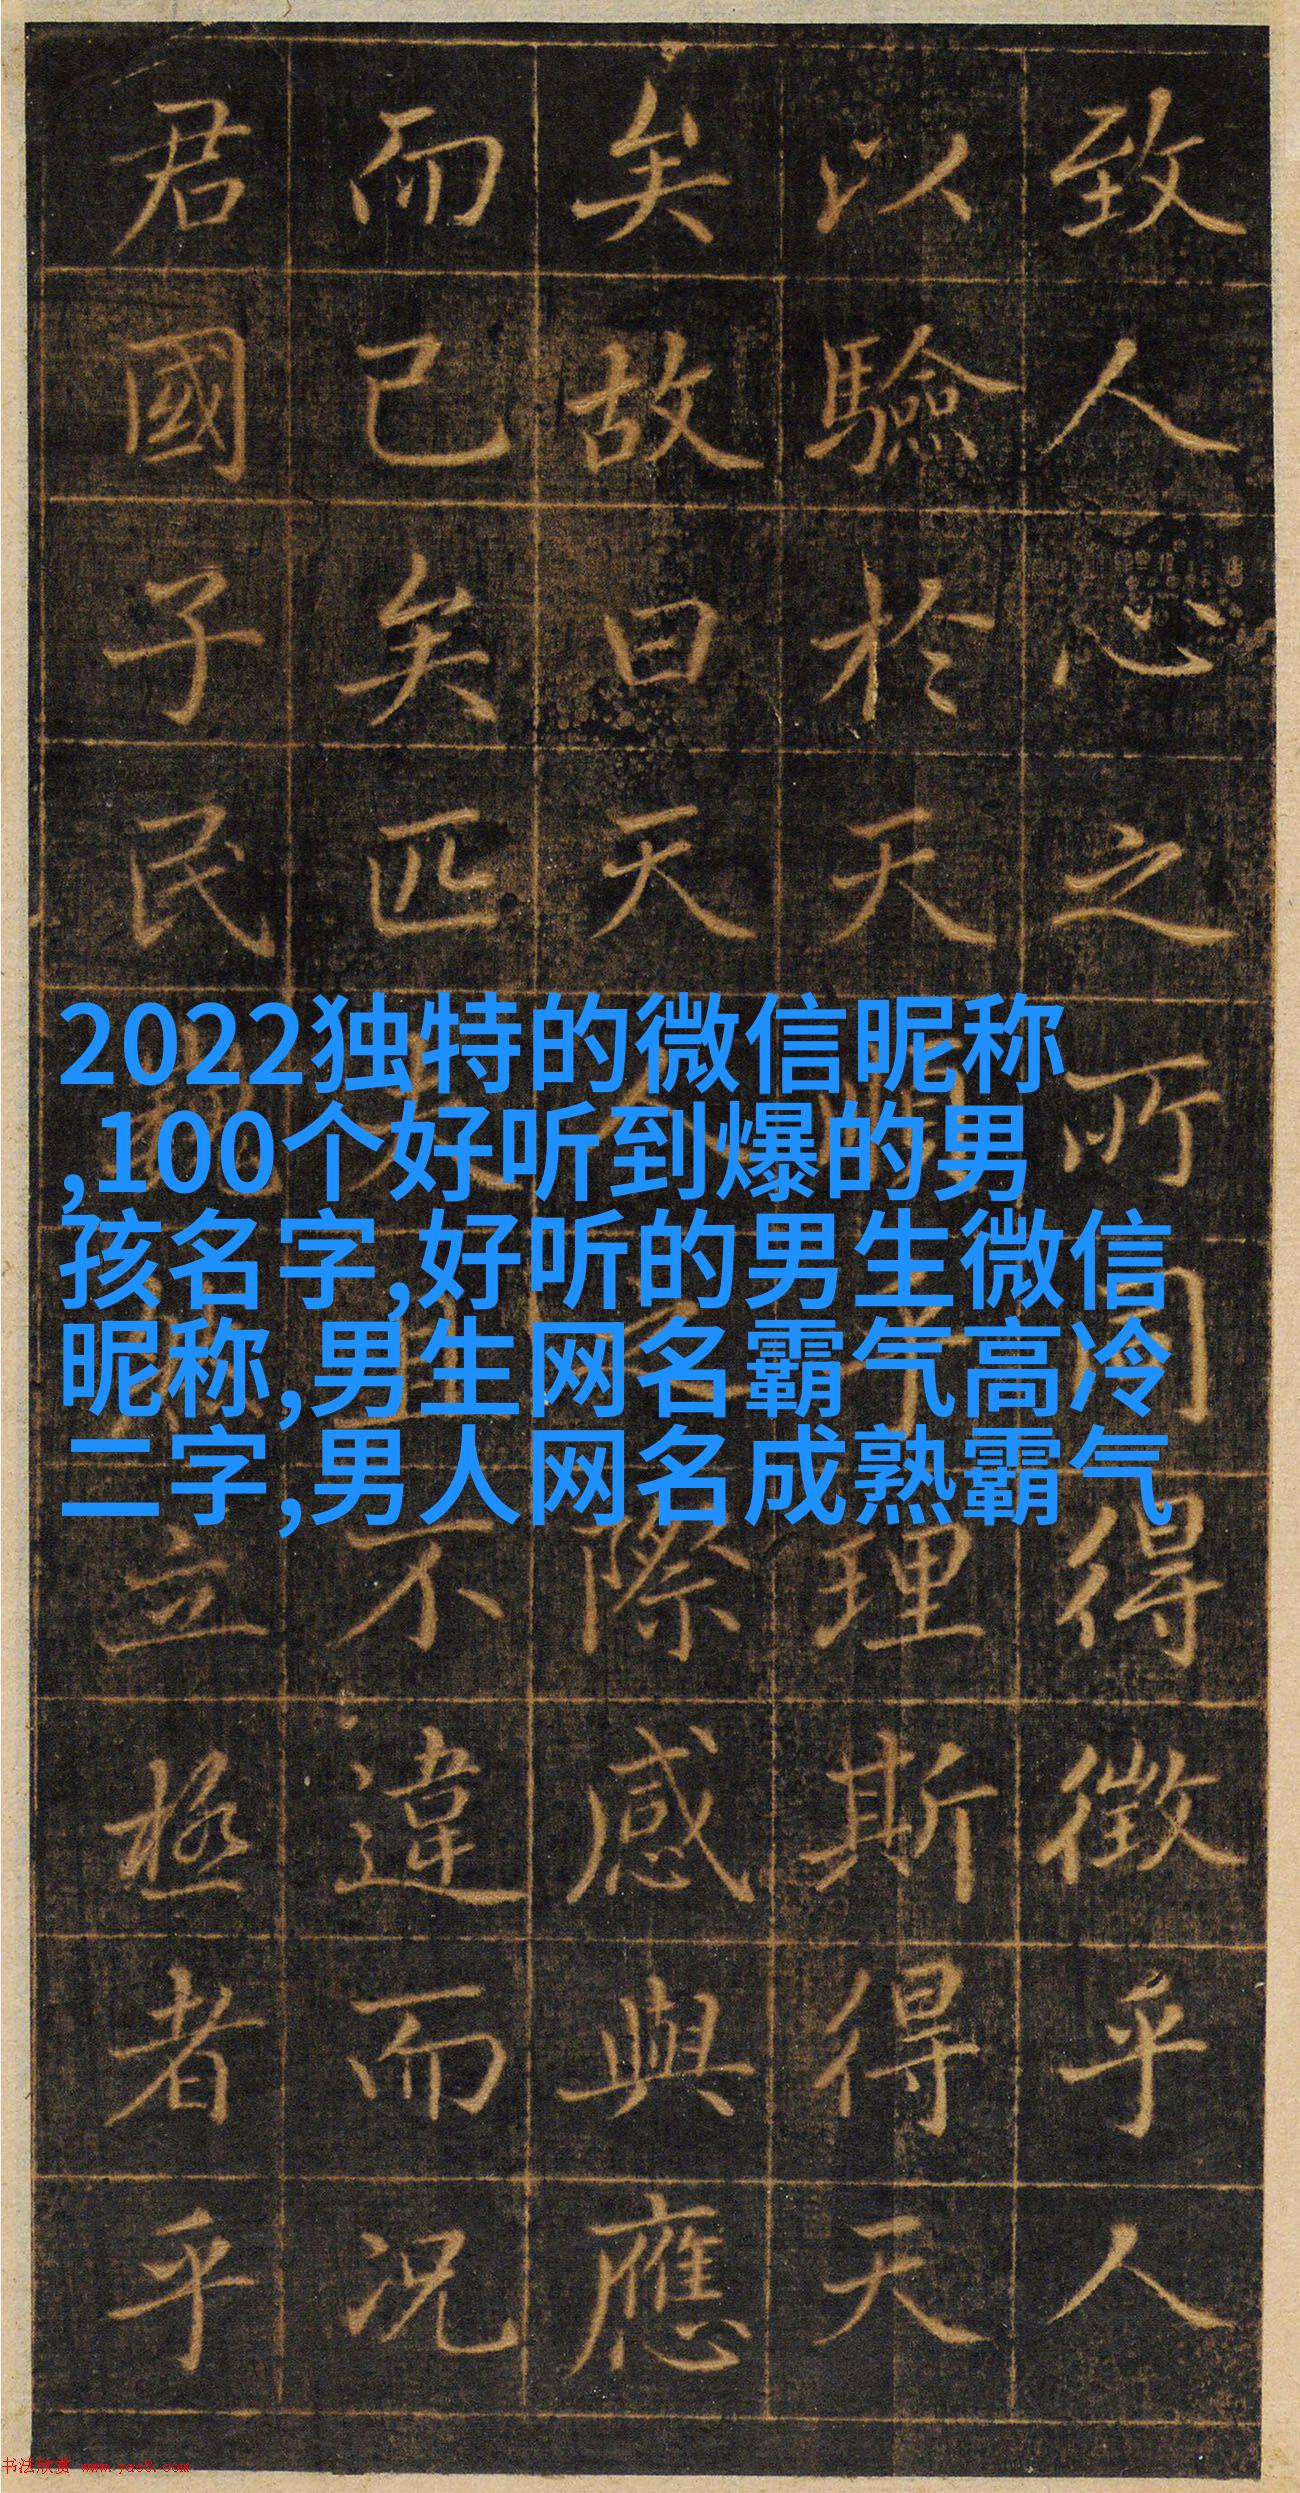 致人心之所同得徵乎人
以驗於天天順乎理斯得天
矣故曰天人之際感與應
而已矣匹夫且不違而況
君國子民立極者乎
2022独特的微信昵称
,100个好听到爆的男
孩名字,好听的男生微信
昵称,男生网名霸气高冷
二字,男人网名成熟霸气
书法欣赏 www.yac8.com